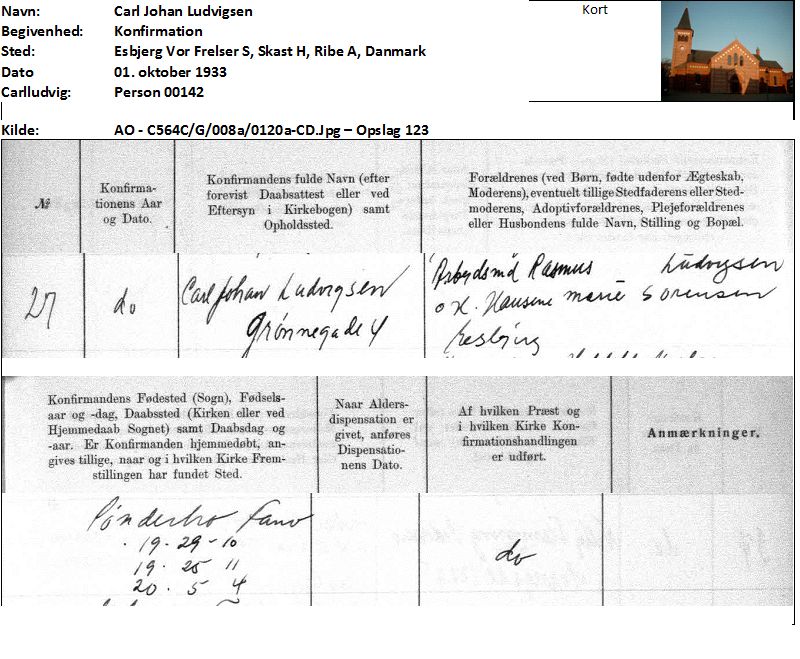 Navn: Carl Johan Ludvigsen
Kort
Begivenhed: Konfirmation
Sted: Esbjerg Vor Frelser S, Skast H, Ribe A, Danmark
Dato 01. oktober 1933
Carlludvig: Person 00142
Kilde: AO - C564C/G/008a/0120a-CD.Jpg – Opslag 123
№
Konfirma-
tionens Aar
og Dato.
Konfirmandens fulde Navn (efter
forevist Daabsattest eller ved
Eftersyn i Kirkebogen) samt
Opholdssted.
Forældrenes (ved Børn, fødte udenfor Ægteskab,
Moderens), eventuelt tillige Stedfaderens eller Sted-
moderens, Adoptivforældrenes, Plejeforældrenes
eller Husbondens fulde Navn, Stilling og Bopæl.
27
do
Carl Johan Ludvigsen
Grønnegade 4
Arbejdsmd Rasmus Ludvigsen
o H. Hansine Marie Sørensen
Konfirmandens Fødested (Sogn), Fødsels-
aar og -dag, Daabssted (Kirken eller ved
Hjemmedaab Sognet) samt Daabsdag og
-aar. Er Konfirmanden hjemmedøbt, an-
gives tillige, naar og i hvilken Kirke Frem-
stillingen har fundet Sted.
Naar Alders-
dispensation er
givet, anføres
Dispensatio-
nens Dato.
Af hvilken Præst og
i hvilken Kirke Kon-
firmationshandlingen
er udført.
Anmærkninger.
Sønderho Fanø
19-29-10
19. 25 11
20. 5 4
do